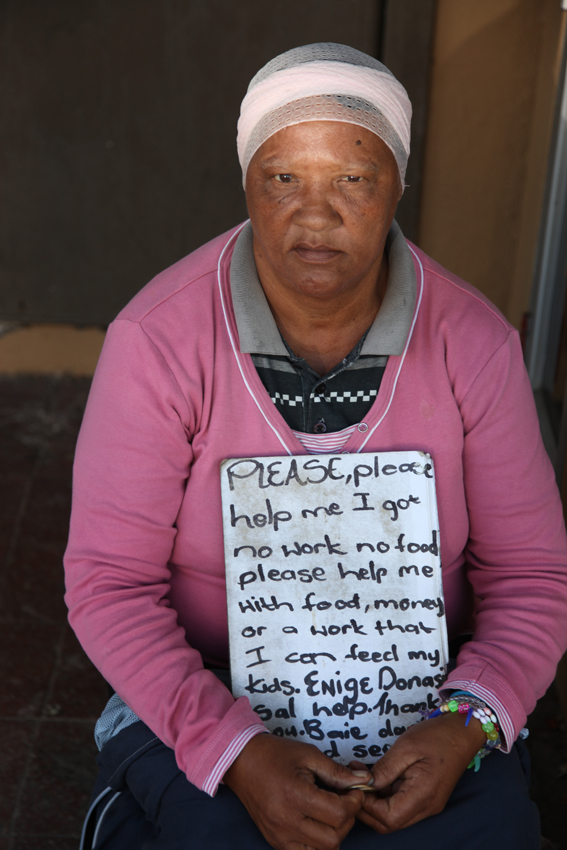 PLEASE, please
help me I got
no work no food
please help me
with food, money
or a work that
I can feed my
kids. ENIGE Donasi
sal help. Thank
ou. Baie da
d see